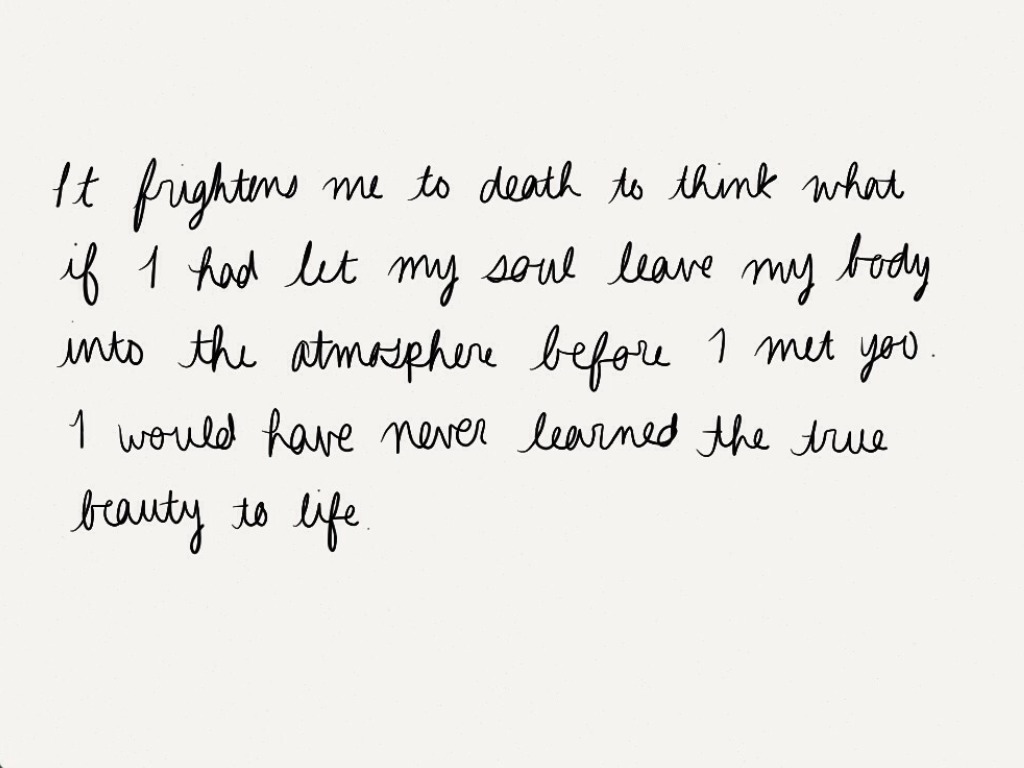 It frightens me to death to think what
if I had let my soul leave my body
into the atmosphere before I met you.
I would have never learned the true
beauty to life.